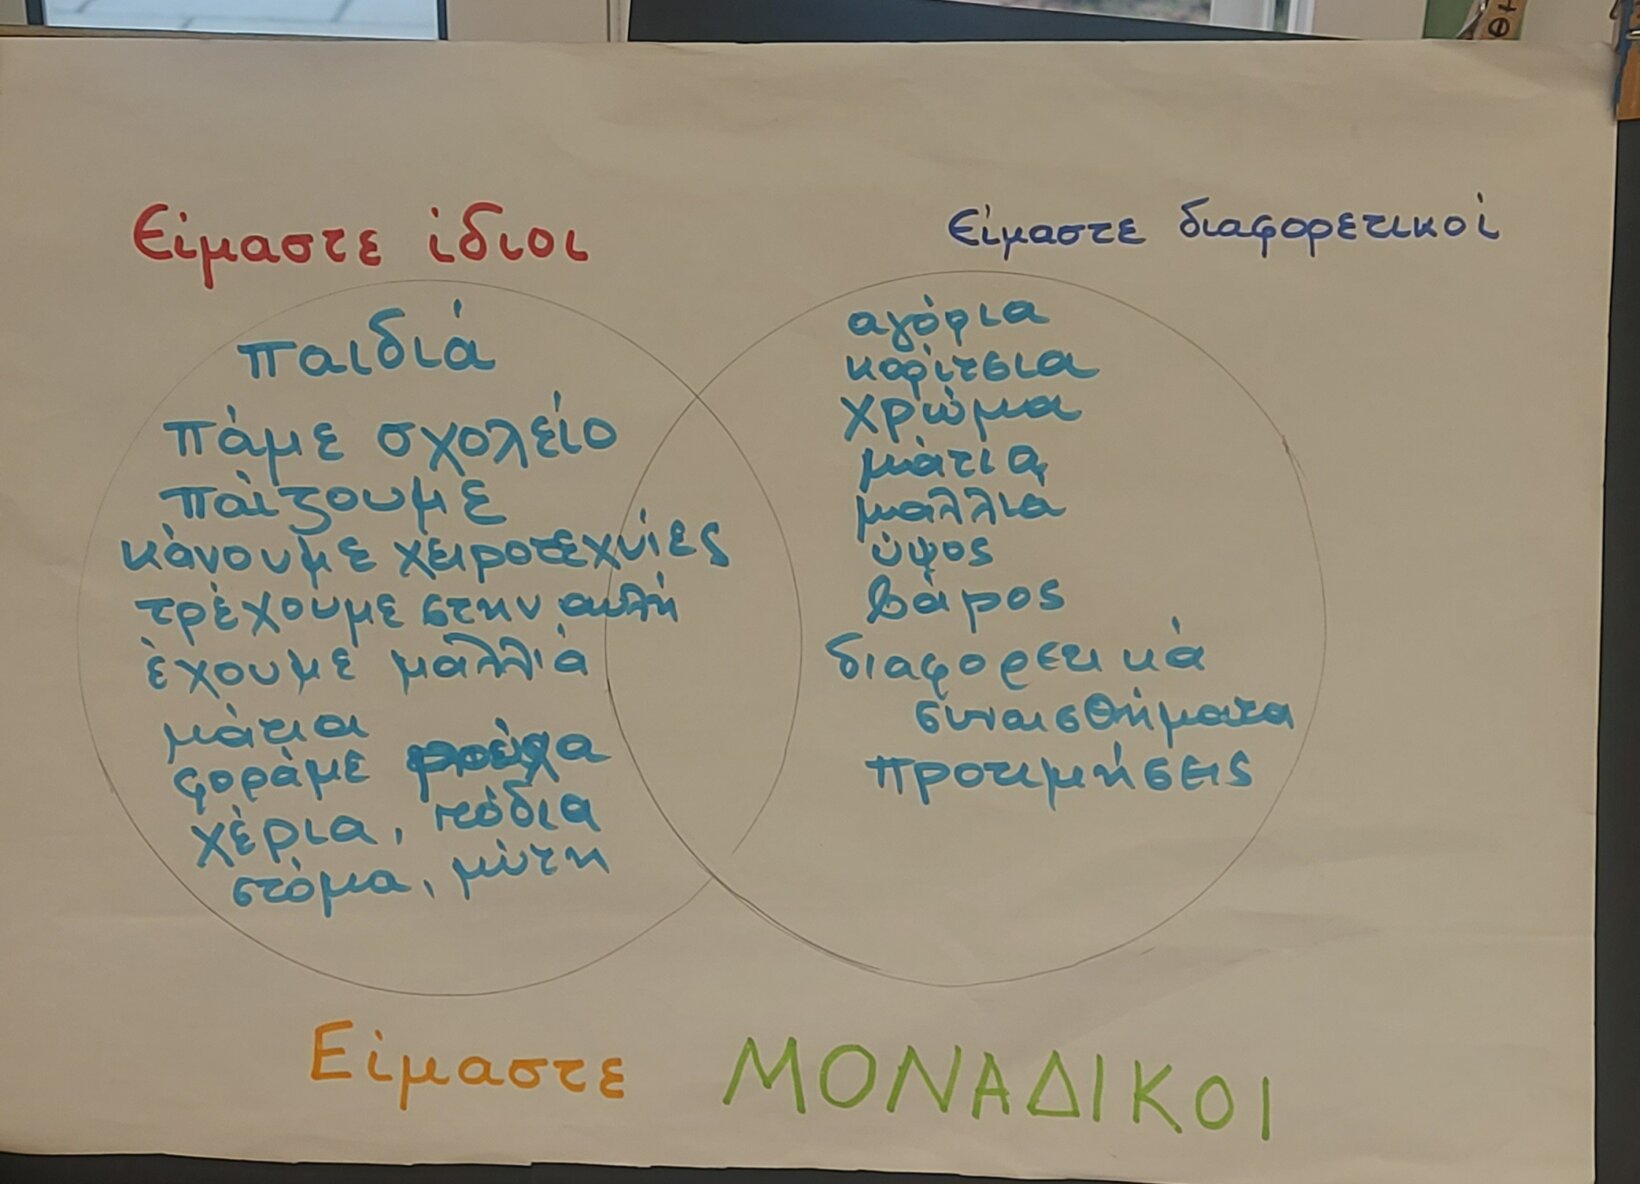 Είμαστε ίδιοι
παιδιά
πάμε σχολείο
παίζουμε
κάνουμε χειροτεχνίες
τρέχουμε στην αυλή
έχουμε μαλλιά
μάτια
φοράμε ρούχα
χέρια, πόδια
στόμα, μύτη
Είμαστε διαφορετικοί
αγόρια
κορίτσια
χρώμα
μάτια
μαλλιά
ύψος
βάρος
διαφορετικά
συναισθήματα
προτιμήσεις
Είμαστε ΜΟΝΑΔΙΚΟΙ